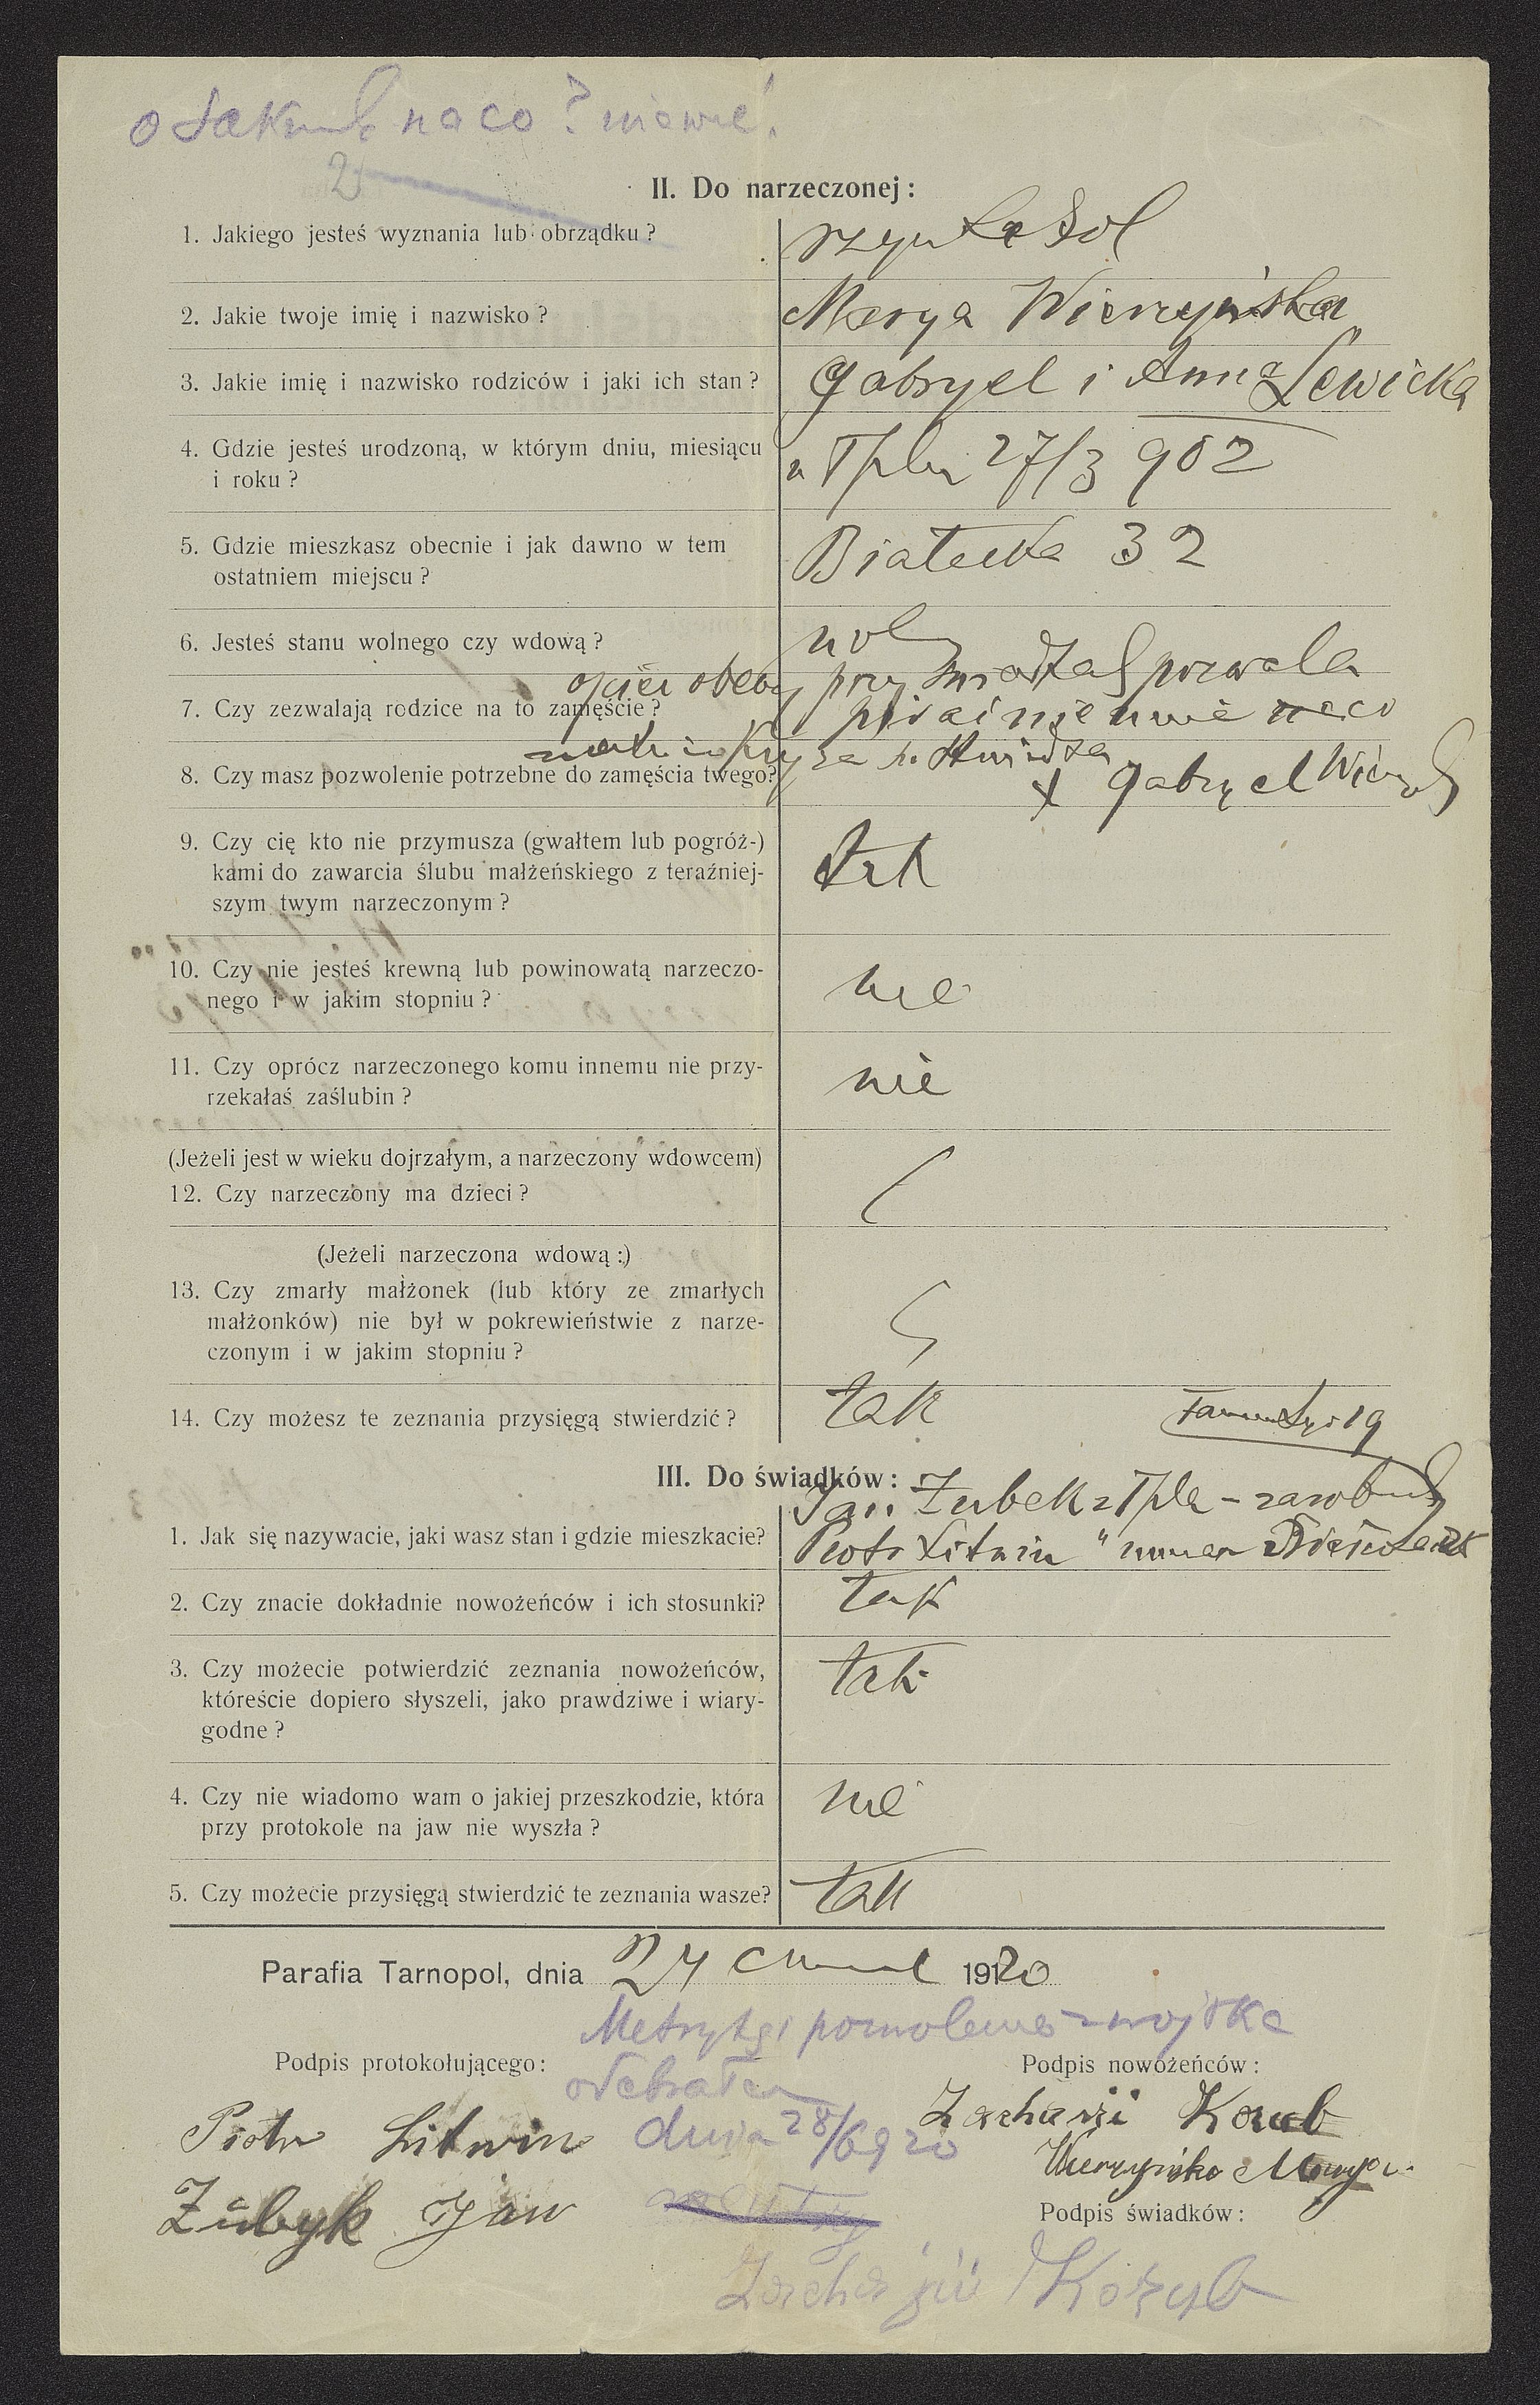 na co? nie wie!
2
II. Do narzeczonej:
1. Jakiego jesteś wyznania lub obrządku?
2. Jakie twoje imię i nazwisko?
Marya Wierzyńska
3. Jakie imię i nazwisko rodziców i jaki ich stan?
Gabryel i Anna Lewicka
4. Gdzie jesteś urodzoną, w którym dniu, miesiącu
i roku?
27/3 902
5. Gdzie mieszkasz obecnie i jak dawno w tem
ostatniem miejscu?
32
6. Jesteś stanu wolnego czy wdową?
wol
ojciec obecny przy pozwala
7. Czy zezwalają rodzice na to zamęście?
pisać nie umie
8. Czy masz pozwolenie potrzebne do zamęścia twego?
x Gabryel
9. Czy cię kto nie przymusza (gwałtem lub pogróż-)
kami do zawarcia ślubu małżeńskiego z teraźniej-
szym twym narzeczonym?
10. Czy nie jesteś krewną lub powinowatą narzeczo-
nego i w jakim stopniu?
nie
11. Czy oprócz narzeczonego komu innemu nie przy-
rzekałaś zaślubin?
nie
(Jeżeli jest w wieku dojrzałym, a narzeczony wdowcem)
12. Czy narzeczony ma dzieci?
(Jeżeli narzeczona wdową:)
13. Czy zmarły małżonek (lub który ze zmarłych
małżonków) nie był w pokrewieństwie z narze-
czonym i w jakim stopniu?
14. Czy możesz te zeznania przysięgą stwierdzić?
tak
19
III. Do świadków:
Jan Zubek z Tpla - zarobnik
1. Jak się nazywacie, jaki wasz stan i gdzie mieszkacie?
Piotr Litwin "
2. Czy znacie dokładnie nowożeńców i ich stosunki?
tak
3. Czy możecie potwierdzić zeznania nowożeńców,
któreście dopiero słyszeli, jako prawdziwe i wiary-
godne?
tak
4. Czy nie wiadomo wam o jakiej przeszkodzie, która
przy protokole na jaw nie wyszła?
nie
5. Czy możecie przysięgą stwierdzić te zeznania wasze?
tak
Parafia Tarnopol, dnia 24 1920
Metrykę i pozwolenie z wojska
Podpis protokołującego:
Podpis nowożeńców:
odebrałem
dnia 28/6 920
Piotr Litwin
Wierzyńska Marya
Zubyk Jan
Podpis świadków: